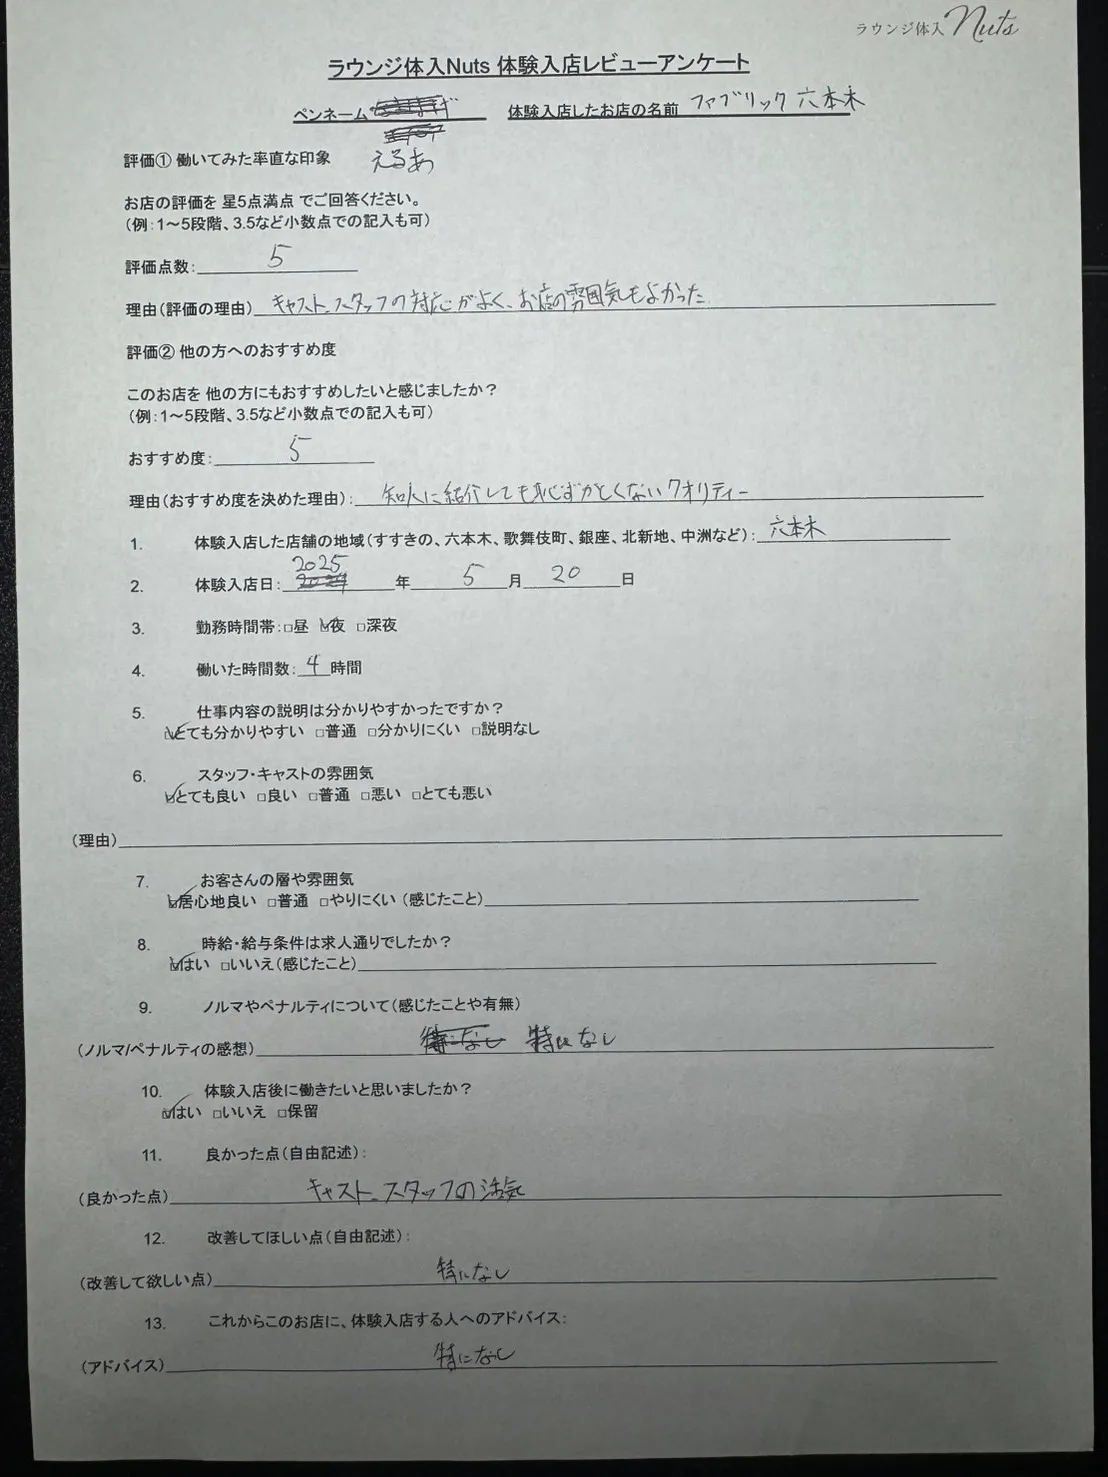 ラウンジ体入 Nuts
ラウンジ体入Nuts 体験入店レビューアンケート
ペンネーム 体験入店したお店の名前 ファブリック 六本木
評価① 働いてみた率直な印象 えるあ
お店の評価を 星5点満点 でご回答ください。
(例:1〜5段階、3.5など小数点での記入も可)
評価点数: 5
理由(評価の理由) キャスト、スタッフの対応がよく、お店の雰囲気もよかった
評価② 他の方へのおすすめ度
このお店を 他の方にもおすすめしたいと感じましたか?
(例:1〜5段階、3.5など小数点での記入も可)
おすすめ度: 5
理由(おすすめ度を決めた理由): 知人に紹介しても恥ずかしくないクオリティー
1. 体験入店した店舗の地域(すすきの、六本木、歌舞伎町、銀座、北新地、中洲など): 六本木
2. 体験入店日: 2025 年 5 月 20 日
3. 勤務時間帯:□昼 ☑夜 □深夜
4. 働いた時間数: 4 時間
5. 仕事内容の説明は分かりやすかったですか?
☑とても分かりやすい □普通 □分かりにくい □説明なし
6. スタッフ・キャストの雰囲気
☑とても良い □良い □普通 □悪い □とても悪い
(理由)
7. お客さんの層や雰囲気
☑居心地良い □普通 □やりにくい (感じたこと)
8. 時給・給与条件は求人通りでしたか?
☑はい □いいえ(感じたこと)
9. ノルマやペナルティについて(感じたことや有無)
(ノルマ/ペナルティの感想) 特になし 特になし
10. 体験入店後に働きたいと思いましたか?
☑はい □いいえ □保留
11. 良かった点(自由記述):
(良かった点) キャスト、スタッフの活気
12. 改善してほしい点(自由記述):
(改善して欲しい点) 特になし
13. これからこのお店に、体験入店する人へのアドバイス:
(アドバイス) 特になし